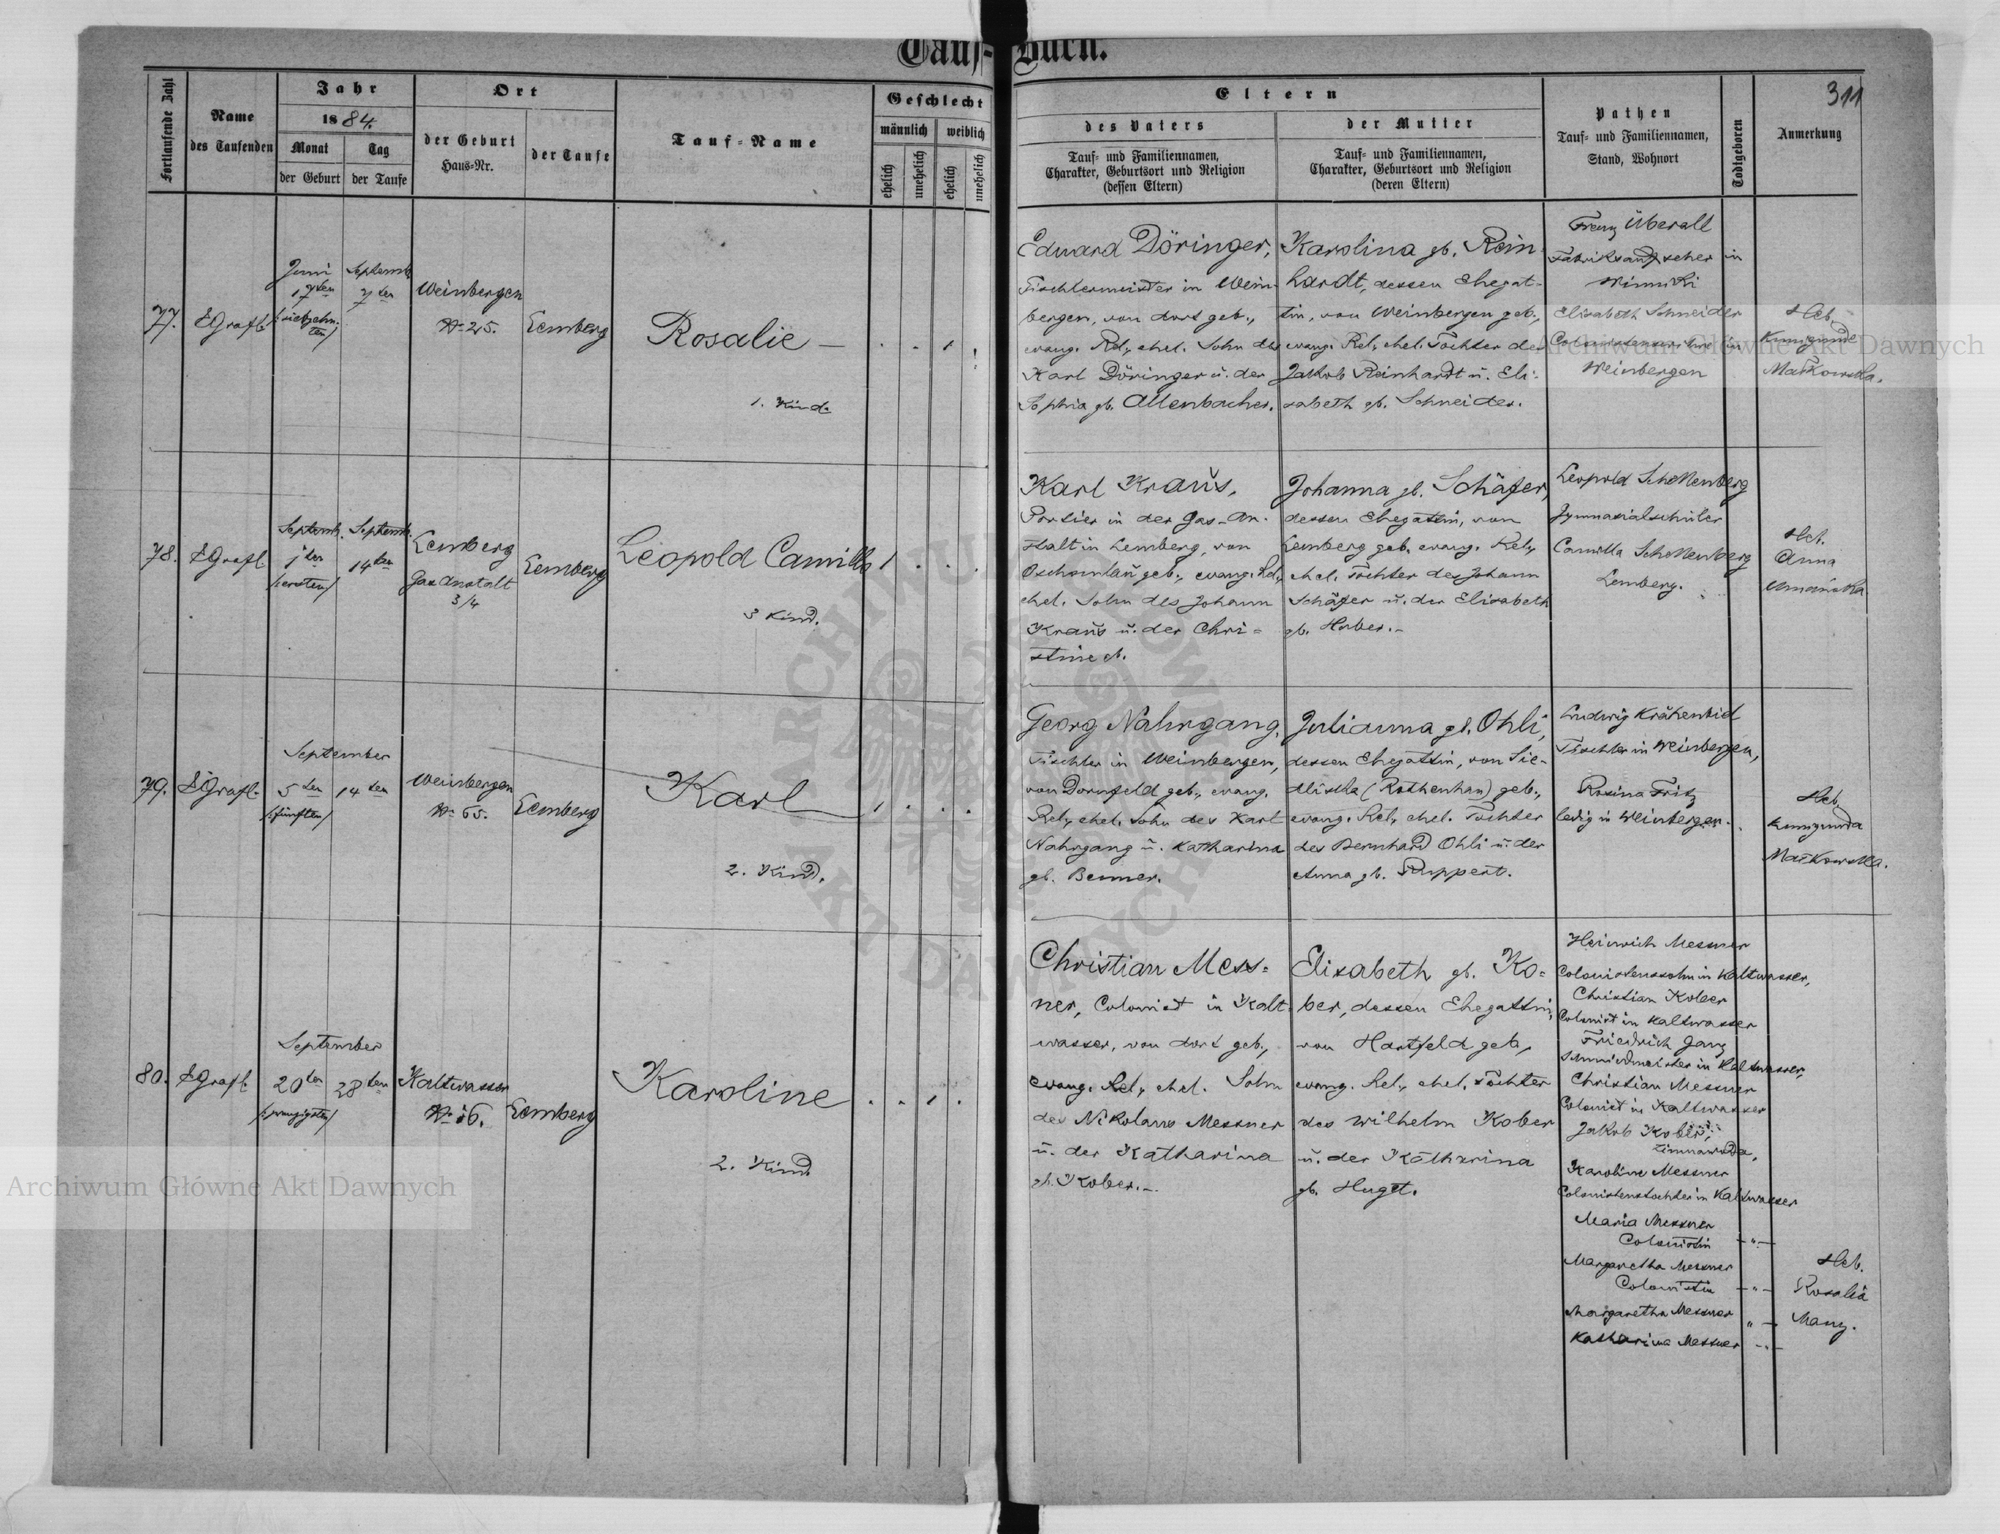 Tauf-Buch.
311
Fortlaufende Zahl
Name
des Taufenden
Jahr
1884.
Monat
der Geburt
Tag
der Taufe
Ort
der Geburt
Haus-Nr.
der Taufe
Tauf-Name
Geschlecht
männlich
weiblich
ehelich
unehelich
ehelich
unehelich
Eltern
des Vaters
Tauf- und Familiennamen,
Charakter, Geburtsort und Religion
(dessen Eltern)
der Mutter
Tauf- und Familiennamen,
Charakter, Geburtsort und Religion
(deren Eltern)
Pathen
Tauf- und Familiennamen,
Stand, Wohnort
Todtgeboren
Anmerkung
77.
EGrafl
Juni
17ten
/siebzehn-
ten/
Septemb.
7ten
Weinbergen
No 25.
Lemberg
Rosalie —
1. Kind.
Eduard Döringer,
Tischlermeister in Wein-
bergen, von dort geb.,
evang. Rel., ehel. Sohn des
Karl Döringer u. der
Sophia gb. Allenbacher.
Karolina gb. Rein-
hardt, dessen Ehegat-
tin, von Weinbergen geb.,
evang. Rel., ehel. Tochter des
Jakob Reinhardt u. Eli-
sabeth gb. Schneider.
Franz Überall
Fabriksaufseher in
Winniki
Elisabeth Schneider
in
Weinbergen
Heb.
Kunigunde
Matkowska.
78.
EGrafl
Septemb.
1ten
/ersten/
Septemb.
14ten
Lemberg
Gasanstalt
3/4
Lemberg
Leopold Camillo
3 Kind.
Karl Kraus,
Portier in der Gas-An-
stalt in Lemberg, von
geb., evang. Rel.,
ehel. Sohn des Johann
Kraus u. der Chri-
stine gb.
Johanna gb. Schäfer,
dessen Ehegattin, von
Lemberg geb. evang. Rel.,
ehel. Tochter des Johann
Schäfer u. der Elisabeth
gb. Huber.–
Leopold Schellenberg
Gymnasialschüler
Camilla Schellenberg
Lemberg.
Heb.
Anna
79.
EGrafl
September
5ten
/fünften/
14ten
Weinbergen
No 65.
Lemberg
Karl
2. Kind.
Georg Nahrgang,
Tischler in Weinbergen,
von Dornfeld geb., evang.
Rel., ehel. Sohn des Karl
Nahrgang u. Katharina
gb. Benner.
Julianna gb. Ohli,
dessen Ehegattin, von Sie-
dliska (Rothenhan) geb.,
evang. Rel., ehel. Tochter
des Bernhard Ohli u. der
Anna gb. Ruppert.
Ludwig Krähenbid
Tischler in Weinbergen,
Rosina Fritz
ledig in Weinbergen.
Heb.
Kunigunda
Matkowska.
80.
EGrafl
September
20ten
/zwanzigsten/
28ten
Kaltwasser
No 16.
Lemberg
Karoline
2. Kind
Christian Mess-
ner, Colonist in Kalt-
wasser, von dort geb.,
evang. Rel., ehel. Sohn
des Nikolaus Messner
u. der Katharina
gb. Kober.–
Elisabeth gb. Ko-
ber, dessen Ehegattin,
von Hartfeld geb.,
evang. Rel., ehel. Tochter
des Wilhelm Kober
u. der Katharina
gb. Huget.
Heinrich Messner
Colonistenssohn in Kaltwasser,
Christian Kober
Colonist in Kaltwasser
Friedrich Ganz
Schmiedmeister in Kaltwasser,
Christian Messner
Colonist in Kaltwasser
Jakob Kober,
Zimnawoda,
Karoline Messner
Colonistenstochter in Kaltwasser
Maria Messner
Colonistin — " —
Margaretha Messner
Colonistin — " —
Margaretha Messner " —
Katharina Messner — " —
Heb.
Rosalia
Manz.
Archiwum Główne Akt Dawnych
Archiwum Główne Akt Dawnych
ARCHIWUM GŁÓWNE AKT DAWNYCH